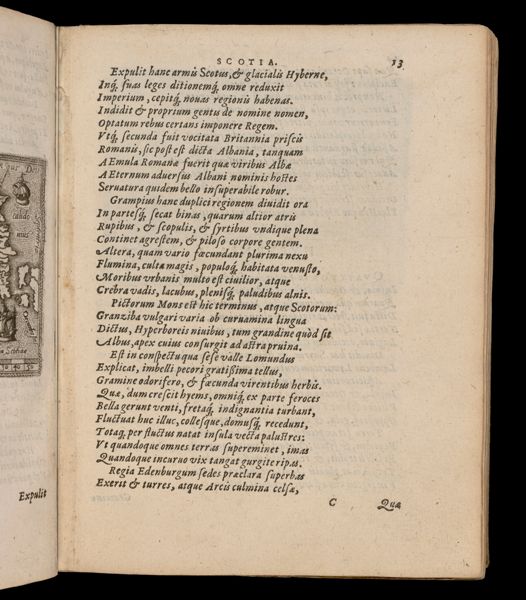 Expulit
SCOTIA. 13
Expulit hanc armis Scotus, & glacialis Hyberne,
Inq́; suas leges ditionemq́; omne reduxit
Imperium, cepitq́; nouas regionis habenas.
Indidit & proprium gentis de nomine nomen,
Optatum rebus certans imponere Regem.
Vtq́; secunda fuit vocitata Britannia priscis
Romanis, sic post est dicta Albania, tanquam
AEmula Romanæ fuerit quæ viribus Albæ
AEternum aduersus Albani nominis hostes
Seruatura quidem bello insuperabile robur.
Grampius hanc duplici regionem diuidit ora
In partesq́; secat binas, quarum altior atris
Rupibus, & scopulis, & syrtibus vndique plena
Continet agrestem, & piloso corpore gentem.
Altera, quam vario fæcundant plurima nexu
Flumina, culta magis, populoq́; habitata venusto,
Moribus vrbanis multo est ciuilior, atque
Crebra vadis, lacubus, plenisq́; paludibus alnis.
Pictorum Mons est hic terminus, atque Scotorum:
Granziba vulgari varia ob curuamina lingua
Dictus, Hyperboreis niuibus, tum grandine quòd sit
Albus, apex cuius consurgit ad astra pruina.
Est in conspectu qua sese valle Lomundus
Explicat, imbelli pecori gratißima tellus,
Gramine odorifero, & fæcunda virentibus herbis.
Quæ, dum crescit hyems, omniq́; ex parte feroces
Bella gerunt venti, fretaq́; indignantia turbant,
Fluctuat huc illuc, collesque, domusq́; recedunt,
Totaq́; per fluctus natat insula vecta palustres:
Vt quandoque omnes terras supereminet, imas
Quandoque incuruo vix tangat gurgite ripas.
Regia Edenburgum sedes præclara superbas
Exerit & turres, atque Arcis culmina celsæ,
C Quæ